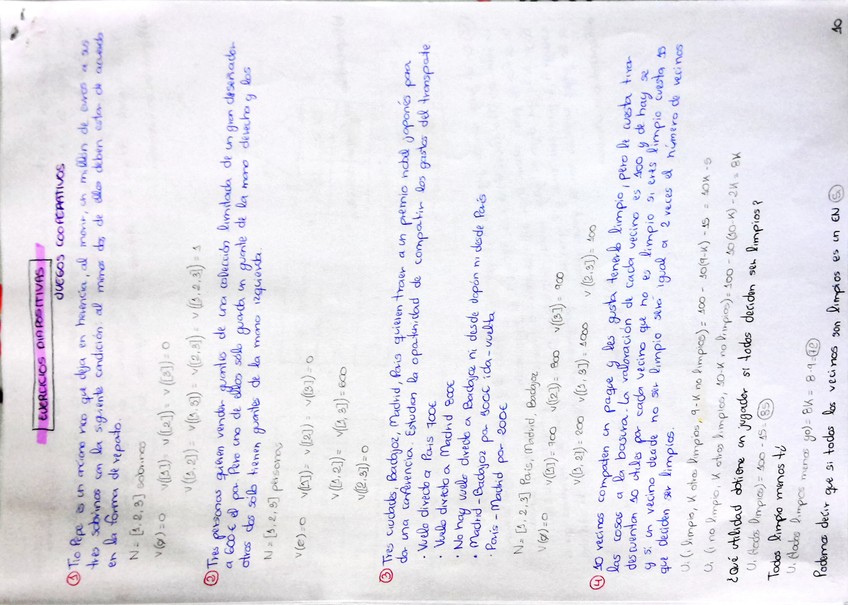 EJERCICIOS DIAPOSITIVAS
JUEGOS COOPERATIVOS
① Tio Pepe es un tio rico que deja en herencia, al morir, un millón de euros a sus
tres sobrinos con la siguiente condición al menos dos de ellos deben estar de acuerdo
en la forma de reparto.
N = {1, 2, 3} sobrinos
v(ø) = 0 v({1}) = v({2}) = v({3}) = 0
v({1,2}) = v({1,3}) = v({2,3}) = v({1,2,3}) = 1
② Tres personas quieren vender guantes de una colección limitada de un gran diseñador
a 600 € el par. Pero uno de ellos solo guarda un guante de la mano derecha y los
otros dos solo tienen guantes de la mano izquierda.
N = {1, 2, 3} personas
v(ø) = 0 v({1}) = v({2}) = v({3}) = 0
v({1,2}) = v({1,3}) = 600
v({2,3}) = 0
③ Tres ciudades, Badajoz, Madrid, Paris quieren traer a un premio nobel japonés para
dar una conferencia. Estudian la oportunidad de compartir los gastos del transporte
· Vuelo directo a París 700€
· Vuelo directo a Madrid 800€
· No hay vuelo directo a Badajoz ni desde Japón ni desde París
· Madrid - Badajoz por 100€ ida-vuelta
· París - Madrid por 200€
N = {1, 2, 3} París, Madrid, Badajoz
v(ø) = 0 v({1}) = 700 v({2}) = 800 v({3}) = 900
④ 10 vecinos comparten un parque y les gusta tenerlo limpio, pero le cuesta tirar
las cosas a la basura. La valoración de cada vecino es 100 y de hay se
descuentan 10 útiles por cada vecino que no es limpio si eres limpio cuesta 15
y si un vecino decide no ser limpio será igual a 2 veces el número de vecinos
que deciden ser limpios.
U. (1 limpio, K otros limpios, 9-K no limpios) = 100 - 10(9-K) - 15 =
U. (1 no limpio, K otros limpios, 10-K no limpios) = 100 - 10(10-K) - 2K = 8K
¿Qué utilidad obtiene un jugador si todos deciden ser limpios?
U. (todos limpios) = 100 - 15 = 85
Todos limpio menos tú
U. (todos limpios menos yo) = 8K = 8·9 = 72
Podemos decir que si todos los vecinos son limpios es un EN
10